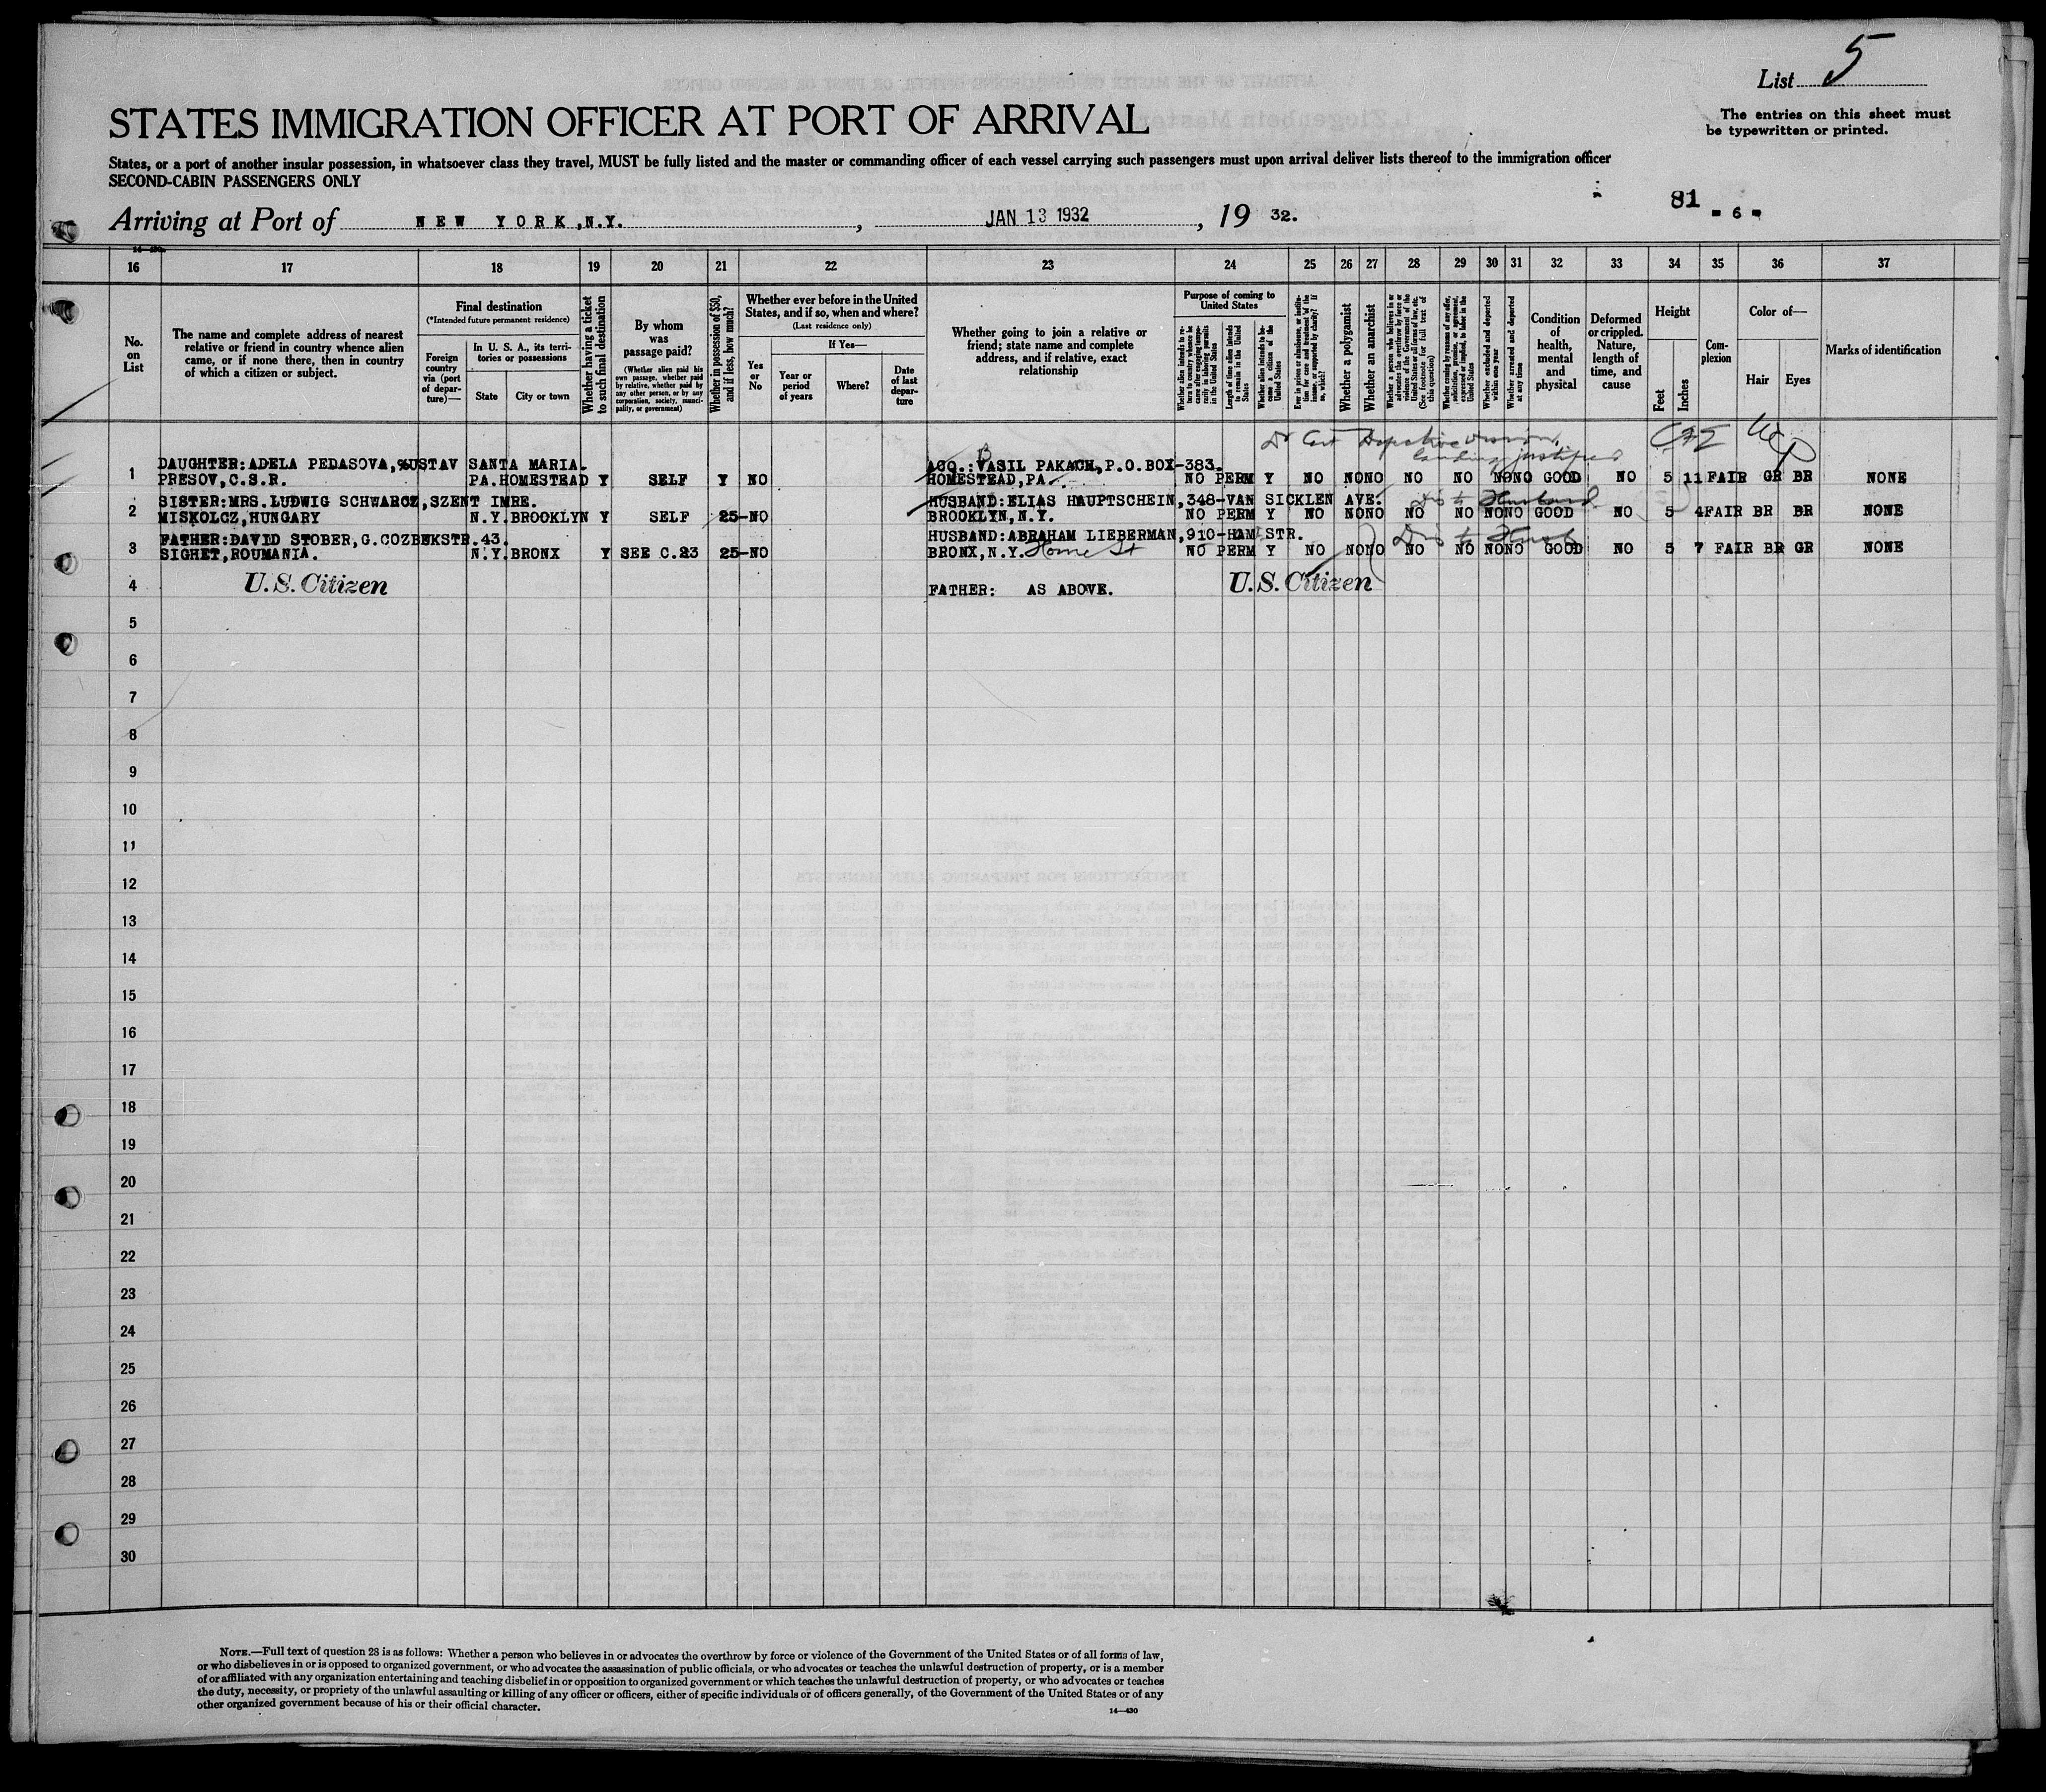 List 5
The entries on this sheet must
be typewritten or printed.
STATES IMMIGRATION OFFICER AT PORT OF ARRIVAL
States, or a port of another insular possession, in whatsoever class they travel, MUST be fully listed and the master or commanding officer of each vessel carrying such passengers must upon arrival deliver lists thereof to the immigration officer
SECOND-CABIN PASSENGERS ONLY
81 - 6 -
Arriving at Port of NEW YORK, N.Y., JAN 13 1932, 19 32.
14-430
16 17 18 19 20 21 22 23 24 25 26 27 28 29 30 31 32 33 34 35 36 37
No. on List
The name and complete address of nearest
relative or friend in country whence alien
came, or if none there, then in country
of which a citizen or subject.
Final destination
(*Intended future permanent residence)
Foreign country via (port of departure)—
In U. S. A., its territories or possessions
State
City or town
Whether having a ticket to such final destination
By whom was passage paid?
(Whether alien paid his own passage, whether paid by relative, whether paid by any other person, or by any corporation, society, municipality, or government)
Whether in possession of $50, and if less, how much?
Whether ever before in the United States, and if so, when and where?
(Last residence only)
Yes or No
If Yes—
Year or period of years
Where?
Date of last departure
Whether going to join a relative or
friend; state name and complete
address, and if relative, exact
relationship
Purpose of coming to United States
Whether alien intends to return to country whence he came after engaging temporarily in laboring pursuits in the United States
Length of time alien intends to remain in the United States
Whether alien intends to become a citizen of the United States
Ever in prison or almshouse, or institution for care and treatment of the insane, or supported by charity? If so, which?
Whether a polygamist
Whether an anarchist
Whether a person who believes in or advocates the overthrow by force or violence of the Government of the United States or all forms of law, etc. (See footnote for full text of this question)
Whether coming by reason of any offer, solicitation, promise, or agreement, expressed or implied, to labor in the United States
Whether excluded and deported within one year
Whether arrested and deported at any time
Condition of health, mental and physical
Deformed or crippled. Nature, length of time, and cause
Height
Feet
Inches
Complexion
Color of—
Hair
Eyes
Marks of identification
Dr Cert Defective vision,
landing justified
1 DAUGHTER:ADELA PEDASOVA,%GUSTAV SANTA MARIA. ACQ.:VASIL PAKACH,P.O.BOX-383.
PRESOV,C.S.R. PA.HOMESTEAD Y SELF Y NO HOMESTEAD,PA. NO PERM Y NO NO NO NO NO NO NO GOOD NO 5 11 FAIR GR BR NONE
2 SISTER:MRS.LUDWIG SCHWARCZ,SZENT IMRE. HUSBAND:ELIAS HAUPTSCHEIN,348-VAN SICKLEN AVE. Dis to Husband
MISKOLCZ,HUNGARY N.Y.BROOKLYN Y SELF 25- NO BROOKLYN,N.Y. NO PERM Y NO NO NO NO NO NO NO GOOD NO 5 4 FAIR BR BR NONE
3 FATHER:DAVID STOBER,G.COZBUKSTR.43. HUSBAND:ABRAHAM LIEBERMAN,910-HAM STR. Dis to Husb
SIGHET,ROUMANIA. N.Y.BRONX Y SEE C.23 25- NO BRONX,N.Y. Home St NO PERM Y NO NO NO NO NO NO NO GOOD NO 5 7 FAIR BR GR NONE
4 U.S. Citizen FATHER: AS ABOVE. U.S. Citizen
5
6
7
8
9
10
11
12
13
14
15
16
17
18
19
20
21
22
23
24
25
26
27
28
29
30
NOTE.—Full text of question 28 is as follows: Whether a person who believes in or advocates the overthrow by force or violence of the Government of the United States or of all forms of law,
or who disbelieves in or is opposed to organized government, or who advocates the assassination of public officials, or who advocates or teaches the unlawful destruction of property, or is a member
of or affiliated with any organization entertaining and teaching disbelief in or opposition to organized government or which teaches the unlawful destruction of property, or who advocates or teaches
the duty, necessity, or propriety of the unlawful assaulting or killing of any officer or officers, either of specific individuals or of officers generally, of the Government of the United States or of any
other organized government because of his or their official character.
14—430